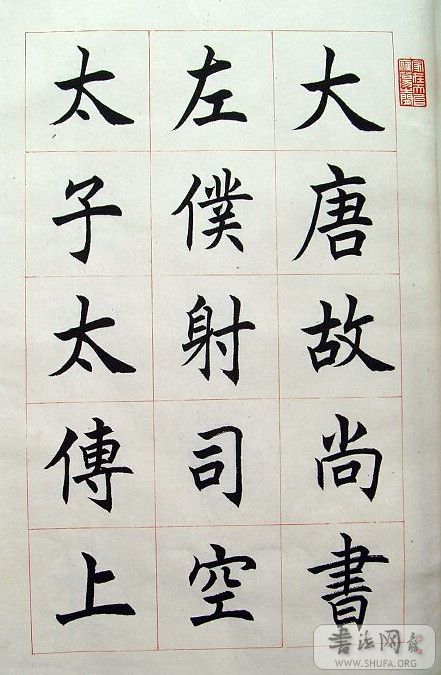 大唐故尚書
左僕射司空
太子太傅上
書法网
WWW.SHUFA.ORG